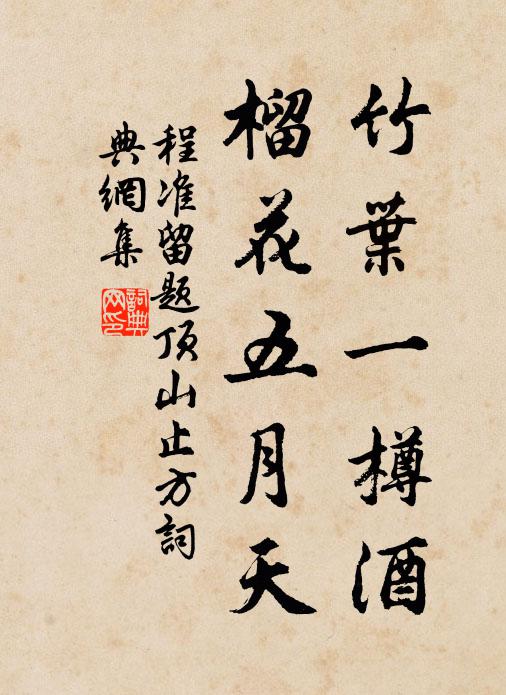 竹葉一樽酒
榴花五月天
程准留题顶山止方詞
典網集
詞典网印